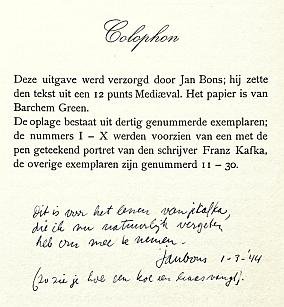 Colophon
Deze uitgave werd verzorgd door Jan Bons; hij zette
den tekst uit een 12 punts Mediæval. Het papier is van
Barchem Green.
De oplage bestaat uit dertig genummerde exemplaren;
de nummers I – X werden voorzien van een met de
pen geteekend portret van den schrijver Franz Kafka,
de overige exemplaren zijn genummerd 11 – 30.
dit is voor het lenen van je Kafka,
die ik nu natuurlijk vergeten
heb om mee te nemen.
Jan bons 1-3-'44
(zo zie je hoe een koe een haas vangt).